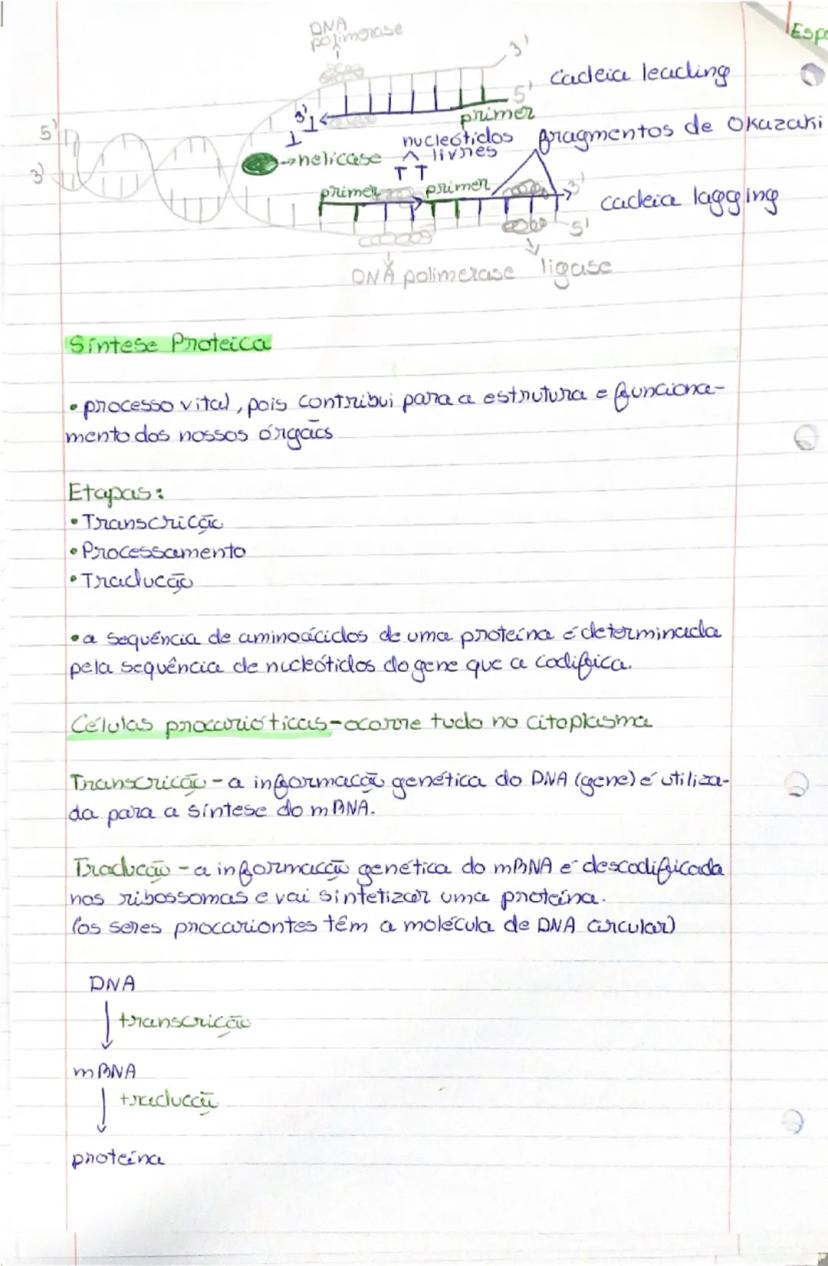 DNA
polimerase
3'
Esp
cadeia leading
5'
3'
primer
5'
nucleótidos
fragmentos de Okazaki
livres
helicase
3'
primer
primer
3'
cadeia lagging
5'
DNA polimerase
ligase
Síntese Proteica
• processo vital, pois contribui para a estrutura e funciona-
mento dos nossos órgãos
Etapas:
• Transcrição
• Processamento
• Tradução
• a sequência de aminoácidos de uma proteína é determinada
pela sequência de nucleótidos do gene que a codifica.
Células procarióticas - ocorre tudo no citoplasma
Transcrição - a informação genética do DNA (gene) é utiliza-
da para a síntese do mRNA.
Tradução - a informação genética do mRNA é descodificada
nos ribossomas e vai sintetizar uma proteína.
(os seres procariontes têm a molécula de DNA circular)
DNA
transcrição
mRNA
tradução
proteína